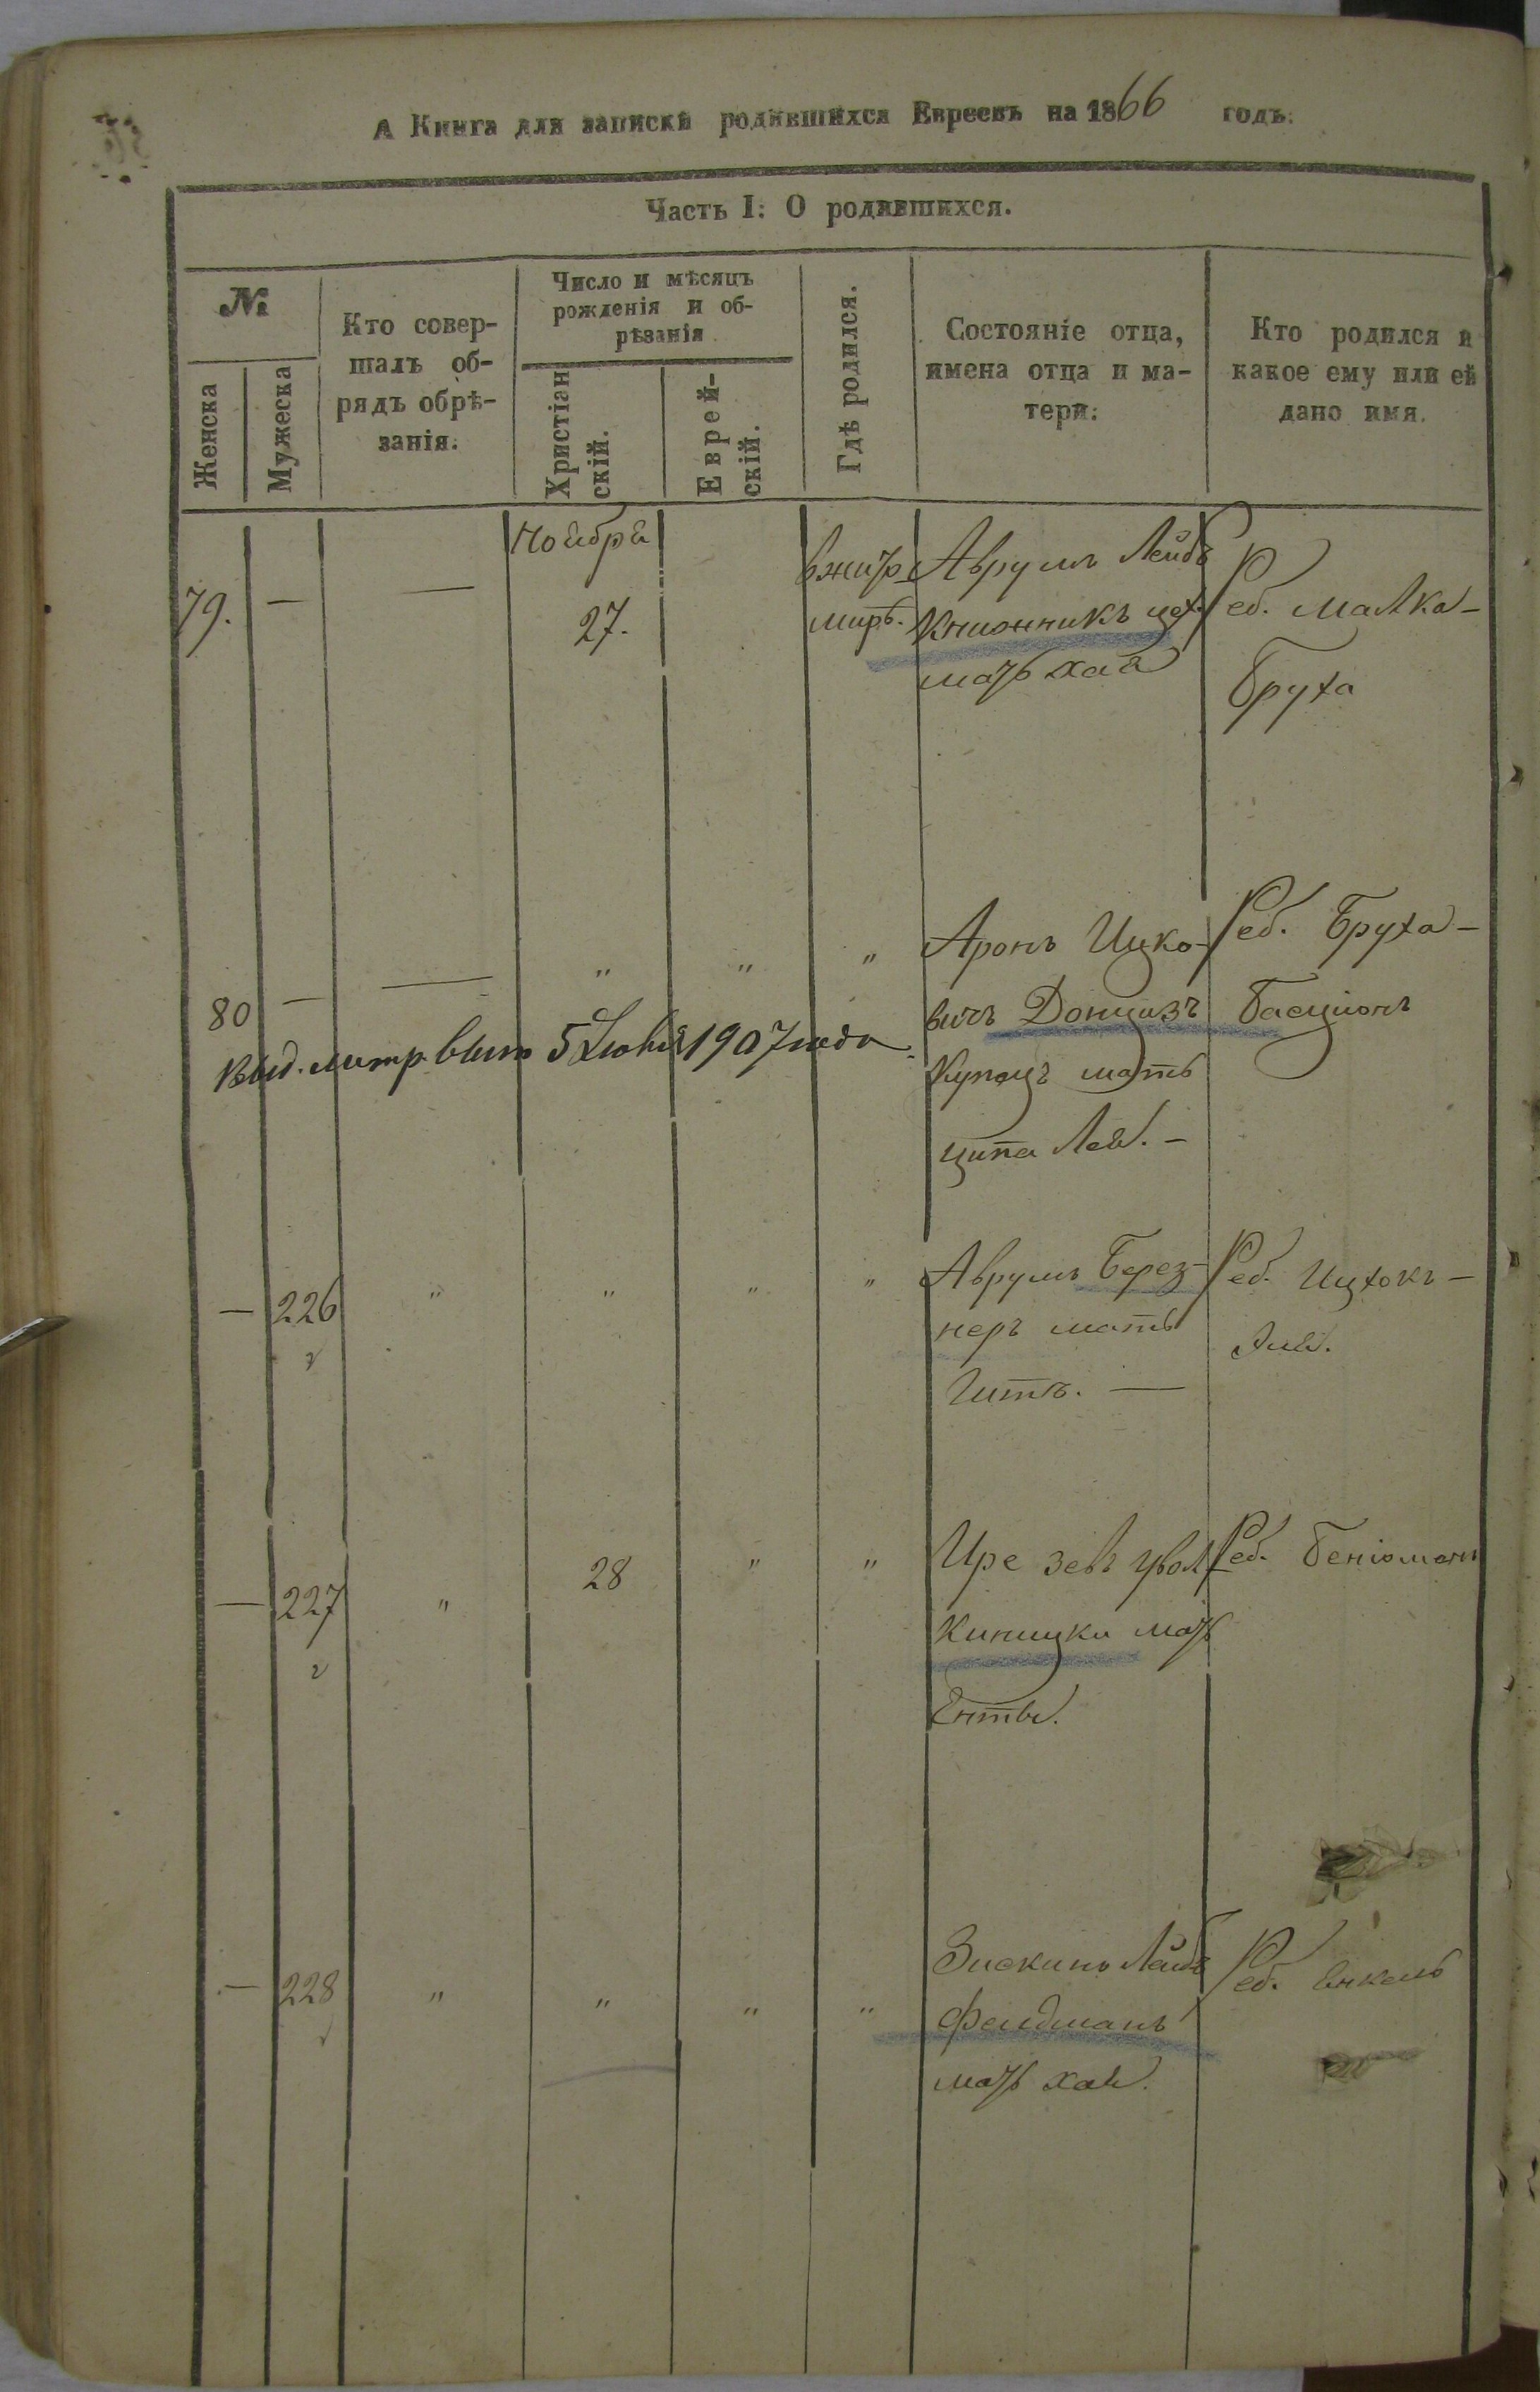 А Книга для записки родившихся Евреевъ на 1866 годъ.
Часть I: О родившихся.
№
Женска
Мужеска
Кто совер-
шалъ об-
рядъ обрѣ-
занія.
Число и мѣсяцъ
рожденія и об-
рѣзанія
Христіан
скій.
Еврей-
скій.
Гдѣ родился.
Состояніе отца,
имена отца и ма-
тери.
Кто родился и
какое ему или ей
дано имя.
Ноября
79. — — 27.
вжито
миръ.
Аврумъ Лейбъ
Книонникъ цех.
мать хая
Реб. Малка-
Бруха
80 — — " " "
Аронъ Ицко-
вичъ Донцизъ
Купецъ мать
ципа Лея. -
Реб. Бруха-
Басционъ
Выд. метр. вып 5 Іюня 1907 года
— 226 " " " "
Аврумъ Берез-
неръ мать
Гитъ. —
Реб. Ицхокъ -
— 227 " 28 " "
Ире зевъ увол
Киницки мать
Енты.
Реб. Беніоминъ
— 228 " " " "
Зискинъ Лейбъ
Фелдманъ
мать хая.
Реб. Янкель